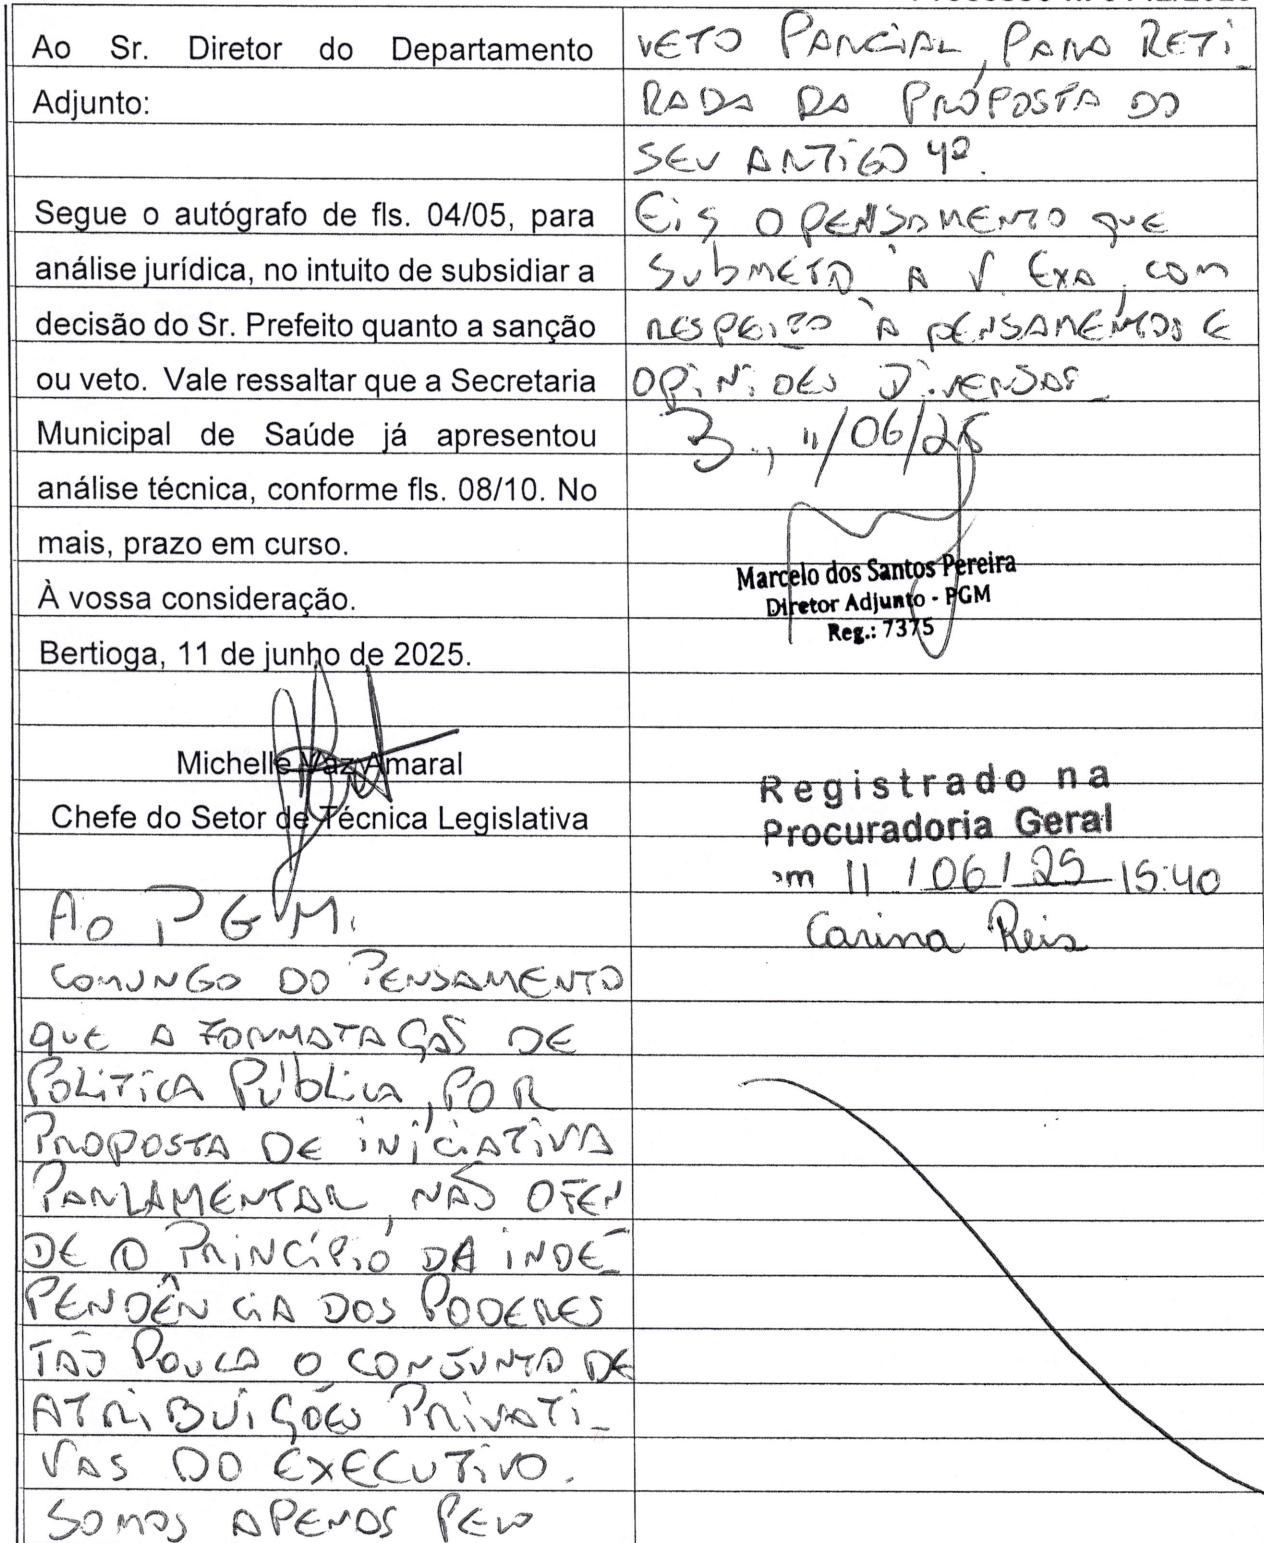 Ao Sr. Diretor do Departamento
Adjunto:
Segue o autógrafo de fls. 04/05, para
análise jurídica, no intuito de subsidiar a
decisão do Sr. Prefeito quanto a sanção
ou veto. Vale ressaltar que a Secretaria
Municipal de Saúde já apresentou
análise técnica, conforme fls. 08/10. No
mais, prazo em curso.
À vossa consideração.
Bertioga, 11 de junho de 2025.
Michelle Vaz Amaral
Chefe do Setor de Técnica Legislativa
Ao PGM.
COMUNGO DO PENSAMENTO
QUE A FORMATAÇÃO DE
POLÍTICA PÚBLICA, POR
PROPOSTA DE INICIATIVA
PARLAMENTAR, NÃO OFEN
DE O PRINCÍPIO DA INDE_
PENDÊNCIA DOS PODERES
TÃO POUCO O CONJUNTO DE
ATRIBUIÇÕES PRIVATI_
VAS DO EXECUTIVO.
SOMOS APENAS PELO
VETO PARCIAL, PARA RETI_
RADA DA PROPOSTA DO
SEU ANTIGO 4º.
EIS O PENSAMENTO QUE
SUBMETO À V. EXA, COM
RESPEITO À PENSAMENTOS E
OPINIÕES DIVERSAS_
B., 11/06/25
Marcelo dos Santos Pereira
Diretor Adjunto - PGM
Reg.: 7375
Registrado na
Procuradoria Geral
em 11/06/25 15:40
Carina Reis